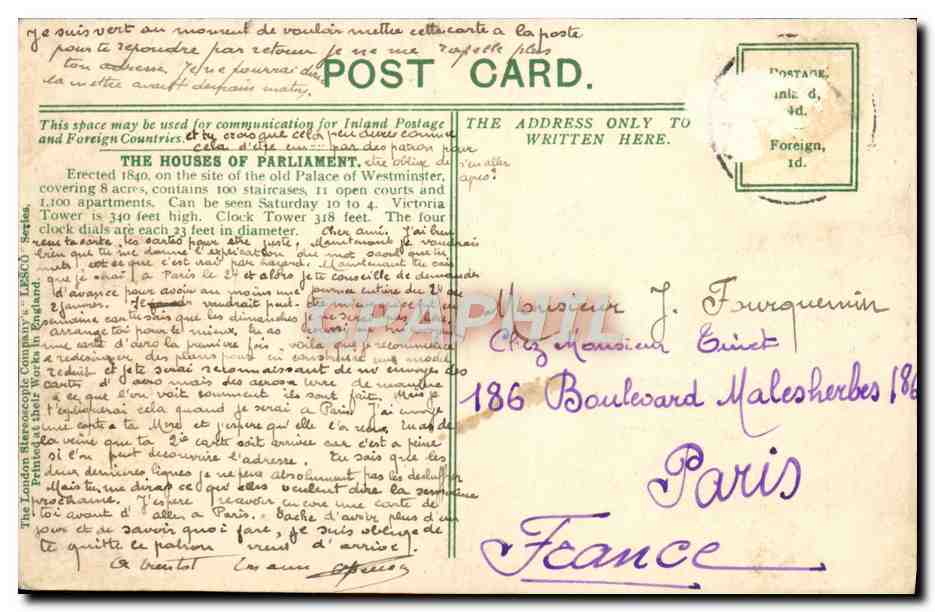 Je suis vert au moment de vouloir mettre cette carte a la poste
pour te repondre par retour je ne me rapelle plus
ton adresse. Je ne pourrai
la mettre avant matin.
POST CARD.
POSTAGE.
Inland,
½d.
Foreign,
1d.
This space may be used for communication for Inland Postage
and Foreign Countries.
et tu crois que cela
cela d'etre par des patron pour
etre oblige de s'en aller
apres?
THE ADDRESS ONLY TO
WRITTEN HERE.
THE HOUSES OF PARLIAMENT.
Erected 1840, on the site of the old Palace of Westminster,
covering 8 acres, contains 100 staircases, 11 open courts and
1,100 apartments. Can be seen Saturday 10 to 4. Victoria
Tower is 340 feet high. Clock Tower 318 feet. The four
clock dials are each 23 feet in diameter.
Cher ami. J'ai bien
ta carte. les cartes pour etre juste. Maintenant je voudrais
bien que tu me donne l'explication du mot que tu
mets, est ce que c'est vrai par hazard. Maintenant tu
que je serai a Paris le 24 et alors je te conseille de demander
d'avance pour avoir au moins une journee entiere du 24 au
2 janvier. Je voudrait peut-etre mieux
semaine car tu sais que les dimanches je
arrange toi pour le mieux. tu as aussi
une carte d'aero la premiere fois. voila que je recommence
a redesiner des plans pour en construire une model
reduit et je te serai reconnaissant de m'envoyer des
cartes d'aero mais des aeros a terre de maniere
a ce que l'on voit comment ils sont fait. Mais je
t'expliquerai cela quand je serai a Paris. J'ai envoye
une carte a ta Mere et j'espere qu'elle l'a recue. Tu as de
la veine que ta 2ie carte soit arrivee car c'est a peine
si l'on peut decouvrire l'adresse. Tu sais que les
deux dernieres lignes je ne peux absolument pas les
Mais tu me diras ce que elles veulent dire la semaine
prochaine. J'espere recevoir encore une carte de
toi avant d'aller a Paris. Tache d'avoir plus d'un
jour et de savoir quoi faire, je suis oblige de
te quitter ce patron vient d'arriver.
A bientot
Monsieur J. Fourquemin
Chez Monsieur
186 Boulevard Malesherbes 186
Paris
France
The London Stereoscopic Company's "LESCO" Series.
Printed at their Works in England.
CPAPHIL